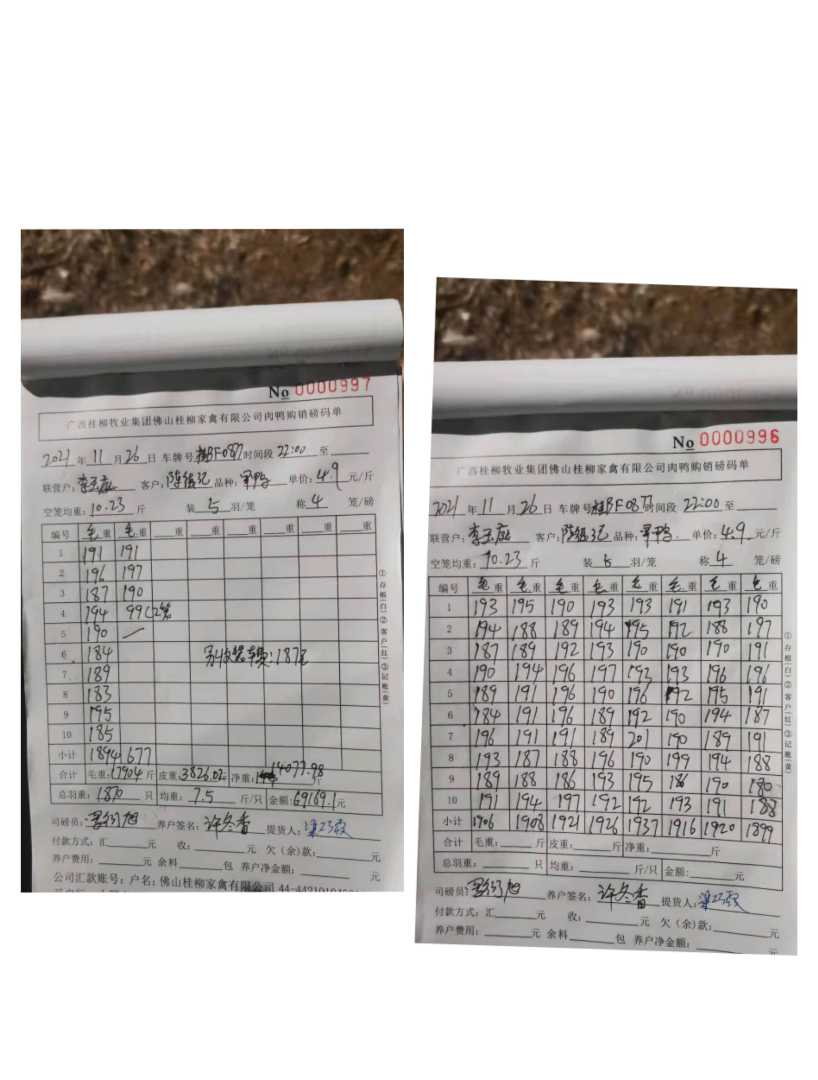 No 0000997
广西桂柳牧业集团佛山桂柳家禽有限公司肉鸭购销磅码单
2021年11月26日 车牌号桂BF087时间段22:00至
联营户: 客户:陈 记 品种: 鸭 单价:4.9元/斤
空笼均重:10.23斤 装5羽/笼 称4笼/磅
编号 毛重 毛重 重 重 重 重 重 重
1 191 191
2 196 197
3 187 190
4 194 99(2笼
5 190
6 184 :187
7 189
8 183
9 195
10 185
小计 1894 677
合计 毛重:17904斤 皮重:3826.02斤 净重:14077.98斤
总羽重:1870只 均重:7.5斤/只 金额:69169.1元
司磅员: 养户签名:许冬香 提货人:
付款方式:汇 元 收: 元 欠(余)款: 元
养户费用: 元 余料 包 养户净金额: 元
公司汇款账号:户名:佛山桂柳家禽有限公司
①存根(白)②客户(红)③记账(黄)
No 0000996
广西桂柳牧业集团佛山桂柳家禽有限公司肉鸭购销磅码单
2021年11月26日 车牌号桂BF087时间段22:00至
联营户: 客户:陈 记 品种: 鸭 单价:4.9元/斤
空笼均重:10.23斤 装5羽/笼 称4笼/磅
编号 毛重 毛重 毛重 毛重 毛重 毛重 毛重 毛重
1 193 195 190 193 193 191 193 190
2 194 188 189 194 195 192 188 197
3 187 189 192 193 190 190 190 191
4 190 194 196 197 193 193 196 196
5 189 191 196 190 196 192 195 191
6 184 191 196 189 192 190 194 187
7 196 191 191 189 201 190 189 191
8 193 187 188 196 190 199 194 188
9 189 188 186 193 195 186 190 180
10 191 194 197 192 192 193 191 188
小计 1906 1908 1921 1926 1937 1916 1920 1899
合计 毛重: 斤 皮重: 斤 净重: 斤
总羽重: 只 均重: 斤/只 金额: 元
司磅员: 养户签名:许冬香 提货人:
付款方式:汇 元 收: 元 欠(余)款: 元
养户费用: 元 余料 包 养户净金额: 元
①存根(白)②客户(红)③记账(黄)